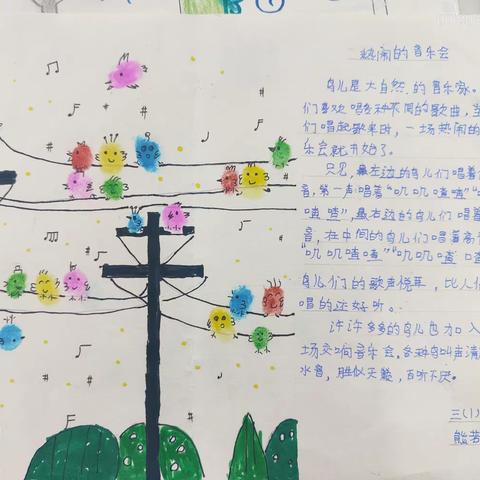 热闹的音乐会
鸟儿是大自然的音乐家。
们喜欢唱各种不同的歌曲，当
们唱起歌来时，一场热闹的
乐会就开始了。
只见，最左边的鸟儿们唱着
音，第一声唱着“叽叽喳喳”“
喳喳”，最右边的鸟儿们唱着
音，在中间的鸟儿们唱着高
“叽叽喳喳”“叽叽喳喳
鸟儿们的歌声悦耳，比人
唱的还好听。
许许多多的鸟儿也加入
场交响音乐会，各种鸟叫声清
水音，胜似天籁，百听不厌。
三（1）
熊若